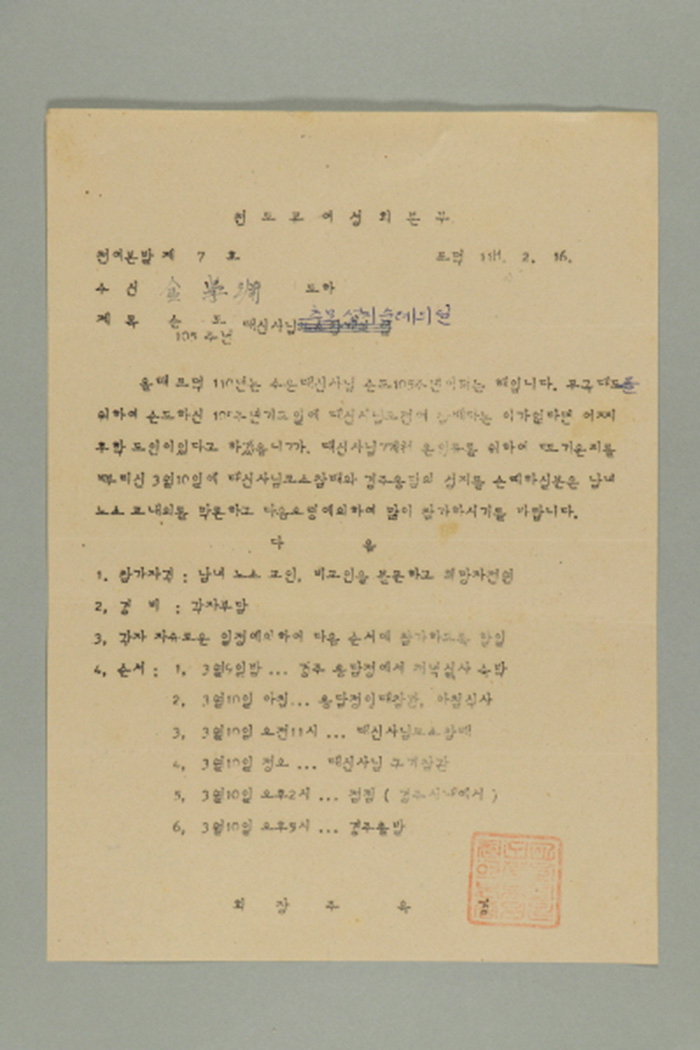 천도교여성회본부
천여본발 제 7 호 포덕 111. 2. 16.
수 신 金 도하
제 목 순 도 추모 성지순례의 건
105 주년 대신사님
올해 포덕 110년는 수운대신사님 순도105주년이되는 해입니다. 무극대도를
위하여 순도하신 105주년기도일에 대신사님묘전에 참배하는 이가없다면 어찌
후학 도인이있다고 하겠읍니까. 대신사님께서 위하여 뜨거운피를
뿌리신 3월10일에 대신사님묘소참배와 경주용담의 성지를 순례하실분은 남녀
노소 교내외를 막론하고 다음요령에의하여 많이 참가하시기를 바랍니다.
다 음
1. 참가자격 : 남녀 노소 교인, 비교인을 불문하고 희망자전원
2, 경 비 : 각자부담
3, 각자 자유로운 일정에의하여 다음 순서에 참가하도록 함
4, 순서 : 1, 3월9일밤 ... 경주 용담정에서 저녁식사 숙박
2, 3월10일 아침... 용담정일대참관, 아침식사
3, 3월10일 오전11시 ... 대신사님묘소참배
4, 3월10일 정오 ... 대신사님 참관
5, 3월10일 오후2시 ... 점심 ( 경주시내에서 )
6, 3월10일 오후5시 ... 경주출발
회 장 주 옥